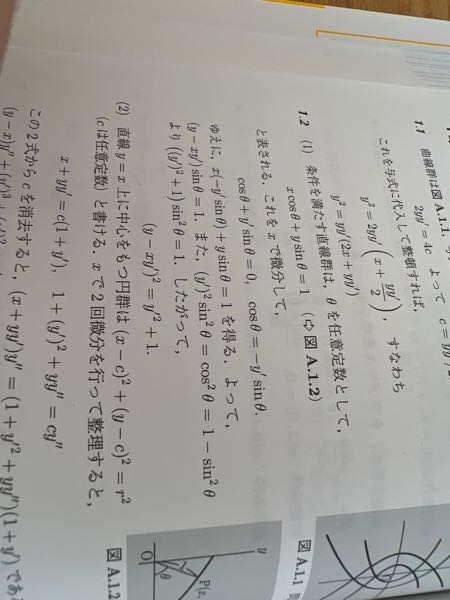 1.1 曲線群は図 A.1.1.
2yy′ = 4c よって c = yy′/2
これを与式に代入して整頓すれば
y² = 2yy′(x + yy′/2), すなわち
y² = yy′(2x + yy′)
1.2 (1) 条件を満たす直線群は, θ を任意定数として,
x cos θ + y sin θ = 1 (⇨ 図 A.1.2)
と表される. これを x で微分して,
cos θ + y′ sin θ = 0, cos θ = −y′ sin θ.
ゆえに, x(−y′ sin θ) + y sin θ = 1 を得る. よって,
(y − xy′) sin θ = 1. また, (y′)² sin² θ = cos² θ = 1 − sin² θ
より ((y′)² + 1) sin² θ = 1. したがって,
(y − xy′)² = y′² + 1.
(2) 直線 y = x 上に中心をもつ円群は (x − c)² + (y − c)² = r²
(c は任意定数) と書ける. x で 2 回微分を行って整理すると,
x + yy′ = c(1 + y′), 1 + (y′)² + yy″ = cy″
この 2 式から c を消去すると, (x + yy′)y″ = (1 + y′² + yy″)(1 + y′) であ
(y − x)y″ + (y′)³ + (y′)²
図 A.1.1
y
P(
θ
O
図 A.1.2